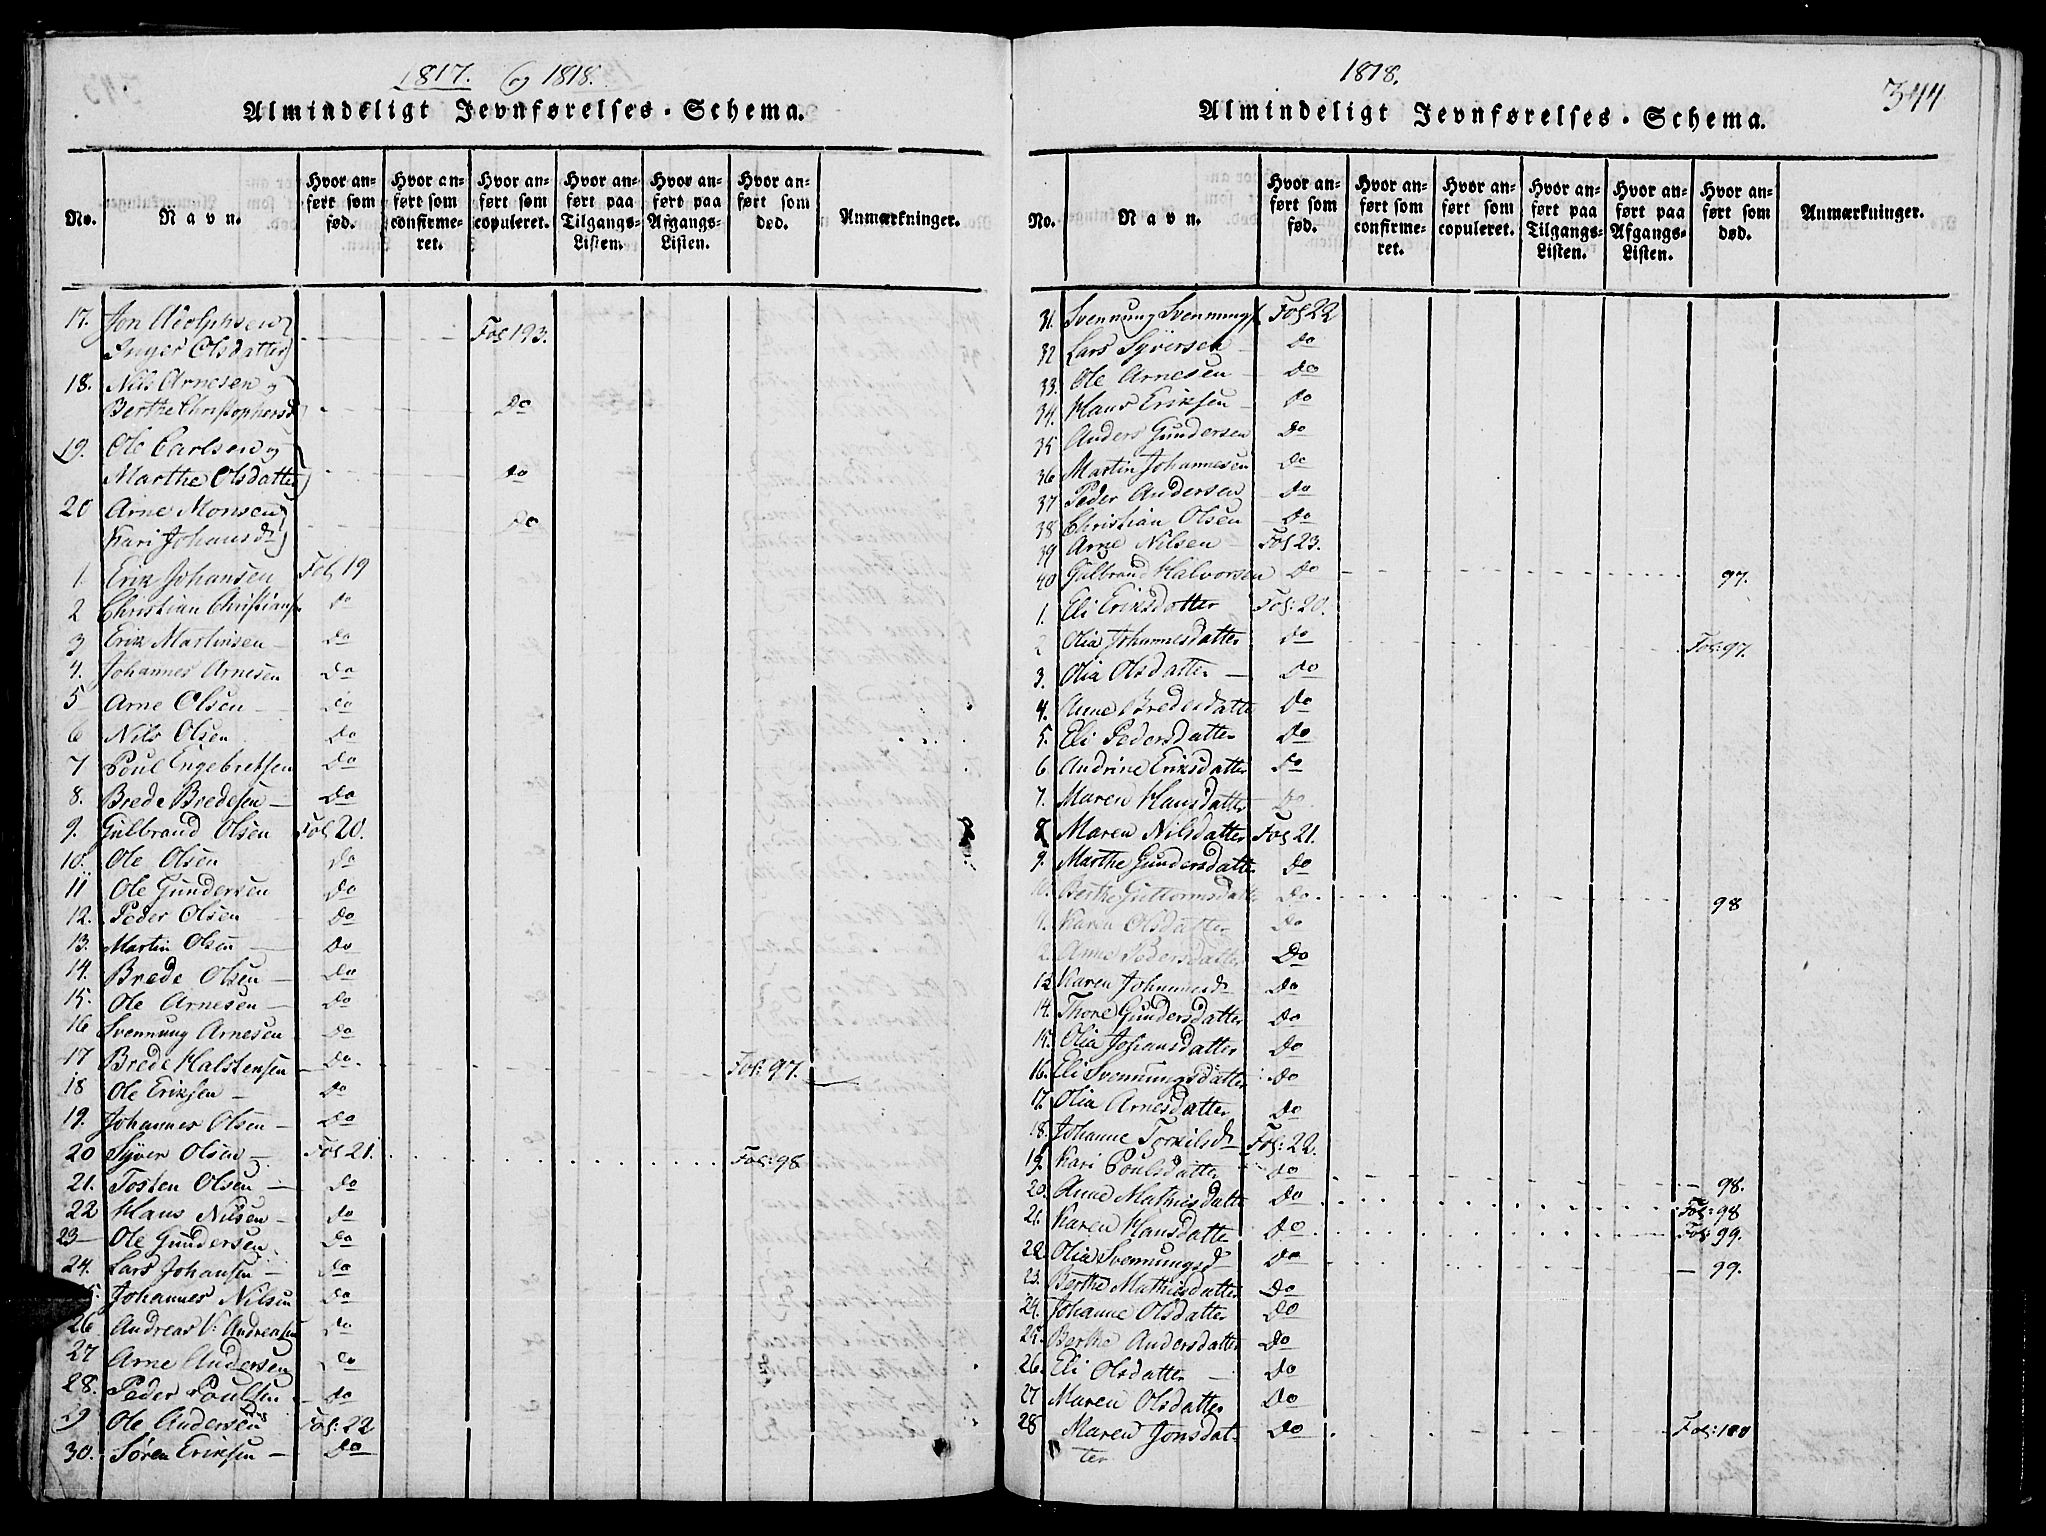 1817. og 1818.
Almindeligt Jevnførelses-Schema.
No. Navn. Hvor anført som fød. Hvor anført som confirmeret. Hvor anført som copuleret. Hvor anført paa Tilgangs-Listen. Hvor anført paa Afgangs-Listen. Hvor anført som død. Anmærkninger.
17. Jon Adolphsen
Inger Olsdatter Fol 193.
18. Nils Arnesen og
Berthe Christophersd do
19. Ole Carlsen og
Marthe Olsdatter do
20 Arne Monsen
Kari Johansd do
1. Erik Johansen Fol 19
2 Christian Christians do
3 Erik Martinsen do
4. Johannes Arnesen do
5 Arne Olsen do
6 Nils Olsen do
7 Poul Engebretsen do
8. Brede Bredesen do
9. Gulbrand Olsen Fol 20.
10. Ole Olsen do
11 Ole Gundersen do
12. Peder Olsen do
13. Martin Olsen do
14. Brede Olsen do
15. Ole Arnesen do
16 Svennung Arnesen do
17 Brede Halstensen do Fol: 97.
18 Ole Eriksen do
19. Johannes Olsen do
20 Syver Olsen Fol 21. Fol: 98
21. Tosten Olsen do
22 Hans Nilsen do
23 Ole Gundersen do
24. Lars Johansen do
Johannes Nilsen do
26 Andreas Andreasen do
27 Arne Andersen do
28. Peder Poulsen do
29 Ole Andersen Fol: 22
30. Søren Eriksen do
1818.
344
Almindeligt Jevnførelses-Schema.
No. Navn. Hvor anført som fød. Hvor anført som confirmeret. Hvor anført som copuleret. Hvor anført paa Tilgangs-Listen. Hvor anført paa Afgangs-Listen. Hvor anført som død. Anmærkninger.
31. Svennung Svennungs Fol 22
32 Lars Syversen do
33. Ole Arnesen do
34. Hans Eriksen do
35 Anders Gundersen do
36 Martin Johannesen do
37 Peder Andersen do
38 Christian Olsen do
39 Arne Nilsen Fol 23.
40 Gulbrand Halvorsen do 97.
1. Eli Eriksdatter Fol: 20.
2 Olia Johannesdatter do Fol: 97.
3. Olia Olsdatter do
4. Anne Bredesdatter do
5. Eli Pedersdatter do
6 Andrine Eriksdatter do
7. Maren Hansdatter do
8 Maren Nilsdatter Fol 21.
9. Marthe Gundersdatter do
10. Berthe Guttormsdatte do 98
1. Karen Olsdatter do
2. Anne Pedersdatter do
13 Karen Johannesd do
14. Thore Gundersdatter do
15. Olia Johansdatter do
16. Eli Svennungsdatter do
17. Olia Arnesdatter do
18. Johanne Torkilsd Fol: 22.
19. Kari Poulsdatter do 98.
20. Anne Mathiesdatte do Fol: 98
21. Karen Hansdatte do Fol: 99.
22. Olia Svennungsd do 99.
23. Berthe Mathiesdatter do
24. Johanne Olsdatter do
25. Berthe Andersdatter do
26. Eli Olsdatter do
27 Maren Olsdatter do
28 Maren Jonsdat- do Fol: 100
ter